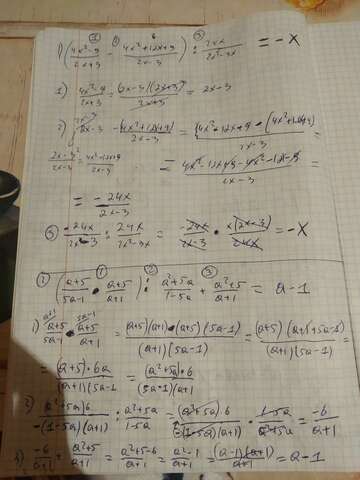 1) ((4x²-9)/(2x+3) - (4x²+12x+9)/(2x-3)) : 24x/(2x²-3x) = -x
1) (4x²-9)/(2x+3) = (2x-3)(2x+3)/(2x+3) = 2x-3
2) 2x-3 - (4x²+12x+9)/(2x-3) = (4x²-12x+9-(4x²+12x+9))/(2x-3) =
= (4x²-12x+9-4x²-12x-9)/(2x-3) =
= -24x/(2x-3)
3) -24x/(2x-3) : 24x/(2x²-3x) = -24x/(2x-3) · x(2x-3)/24x = -x
2) ((a+5)/(5a-1) + (a+5)/(a+1)) : (a²+5a)/(1-5a) + (a²+5)/(a+1) = a-1
1) (a+5)/(5a-1) + (a+5)/(a+1) = ((a+5)(a+1)+(a+5)(5a-1))/((a+1)(5a-1)) = (a+5)(a+1+5a-1)/((a+1)(5a-1)) =
= (a+5)·6a/((a+1)(5a-1)) = (a²+5a)·6/((5a-1)(a+1))
2) (a²+5a)6/(-(1-5a)(a+1)) : (a²+5a)/(1-5a) = (a²+5a)·6/(-(1-5a)(a+1)) · (1-5a)/(a²+5a) = -6/(a+1)
3) -6/(a+1) + (a²+5)/(a+1) = (a²+5-6)/(a+1) = (a²-1)/(a+1) = (a-1)(a+1)/(a+1) = a-1